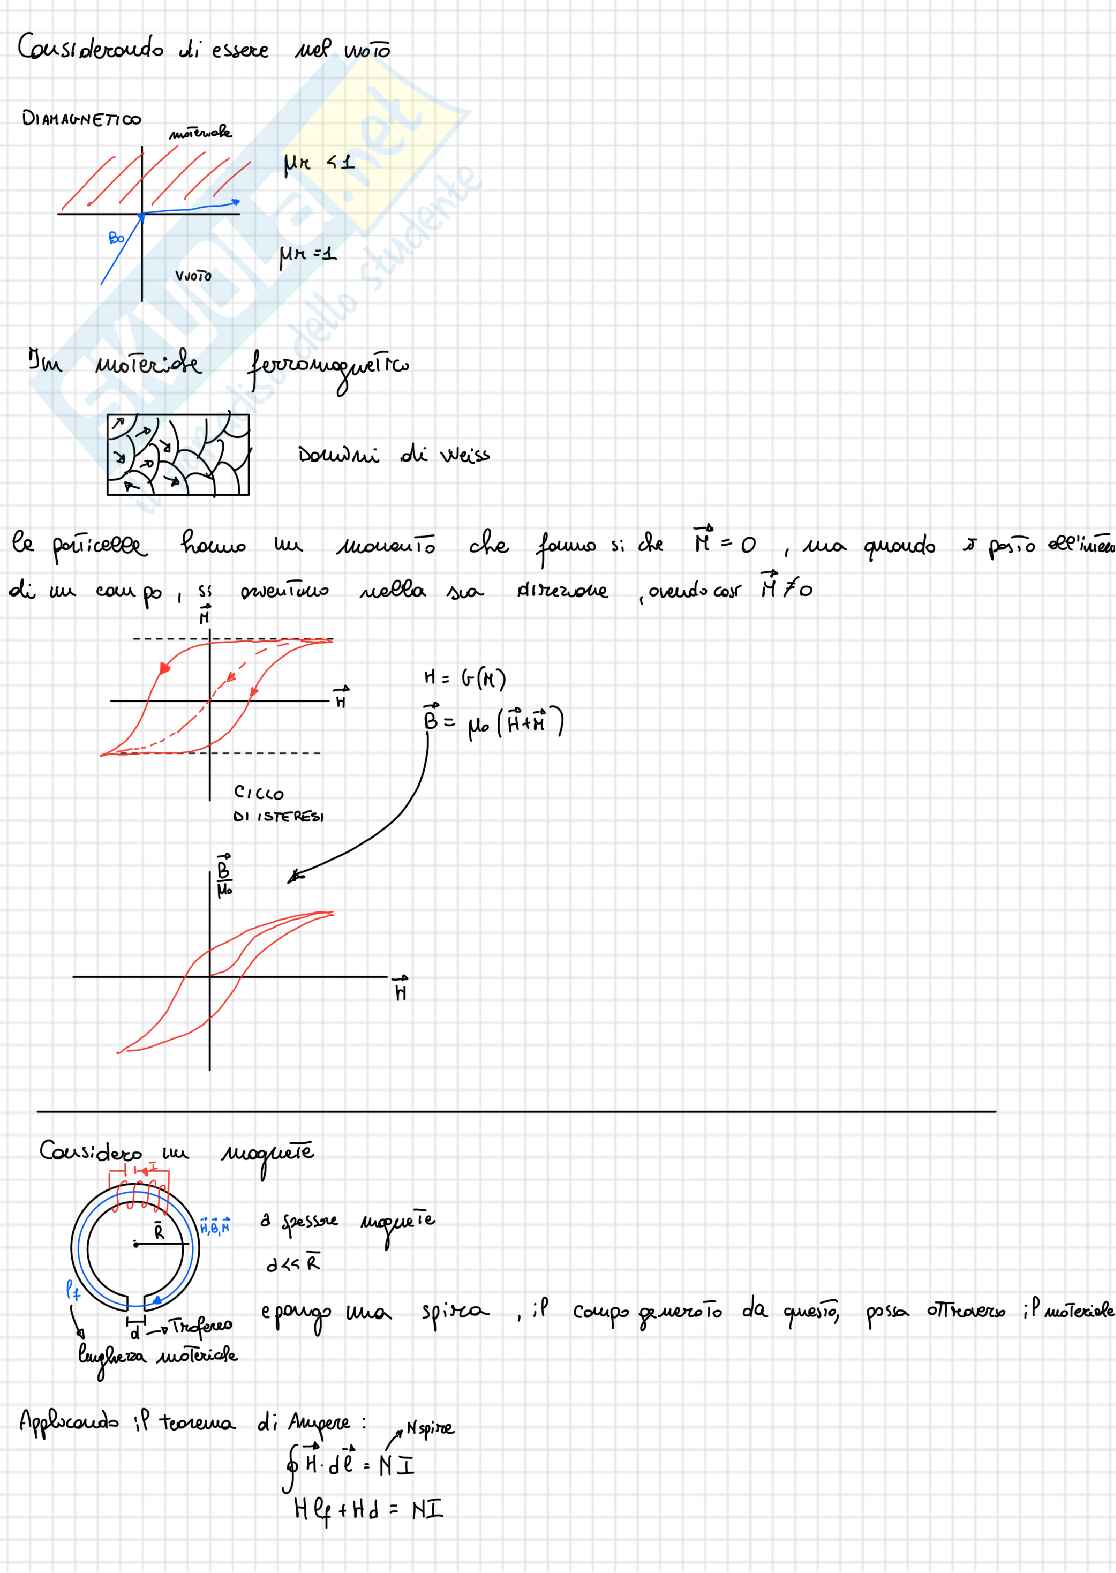 Considerando di essere nel vuoto
DIAMAGNETICO
materiale
μr < 1
B0
μr = 1
VUOTO
SKUOLA.net
dello studente
In materiale ferromagnetico
Domini di Weiss
le particelle hanno un momento che fanno si che M⃗ = 0 , ma quando è posto all'interno
di un campo , si orientano nella sua direzione , avendo così M⃗ ≠ 0
M⃗
H⃗
H = G(M)
B⃗ = μ0 (H⃗+M⃗)
CICLO
DI ISTERESI
B⃗/μ0
H⃗
Considero un magnete
I
R̄
H⃗, B⃗, M⃗
a spessore magnete
d<< R̄
lf
e pongo una spira , il campo generato da questo, passa attraverso il materiale
d → Traferro
lunghezza materiale
Applicando il teorema di Ampere :
N spire
∮ H⃗ · dl⃗ = N I
H lf + H d = NI